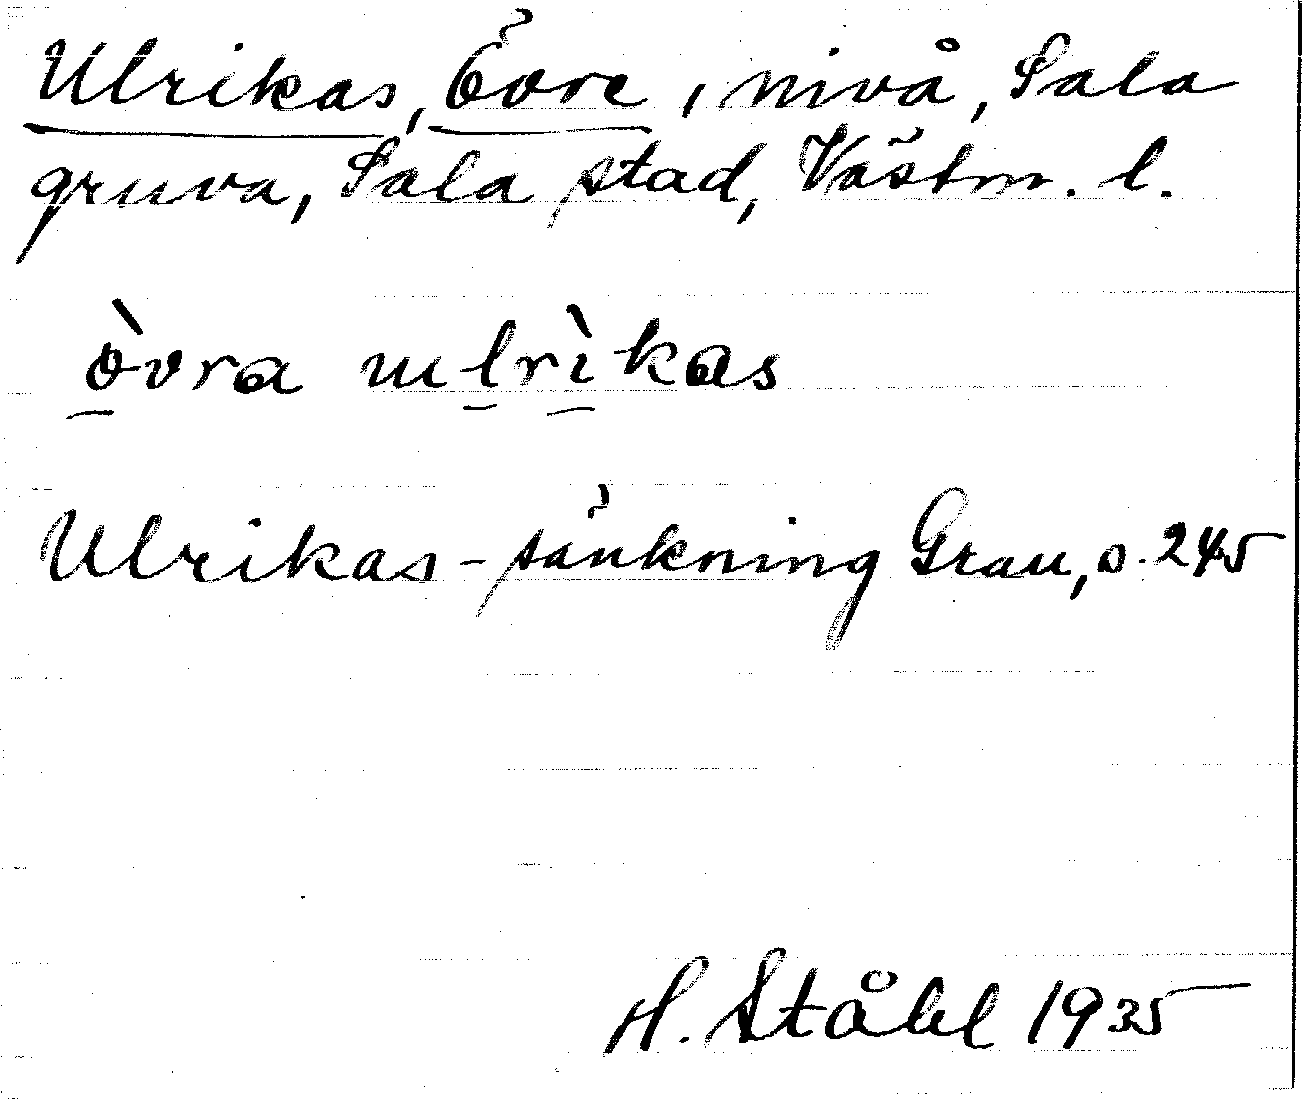 Ulrikas, Övre, nivå, Sala
gruva, Sala stad, Västm. l.
òvra ulrìkas
Ulrikas-sänkning Grau, s. 245
H. Ståhl 1935